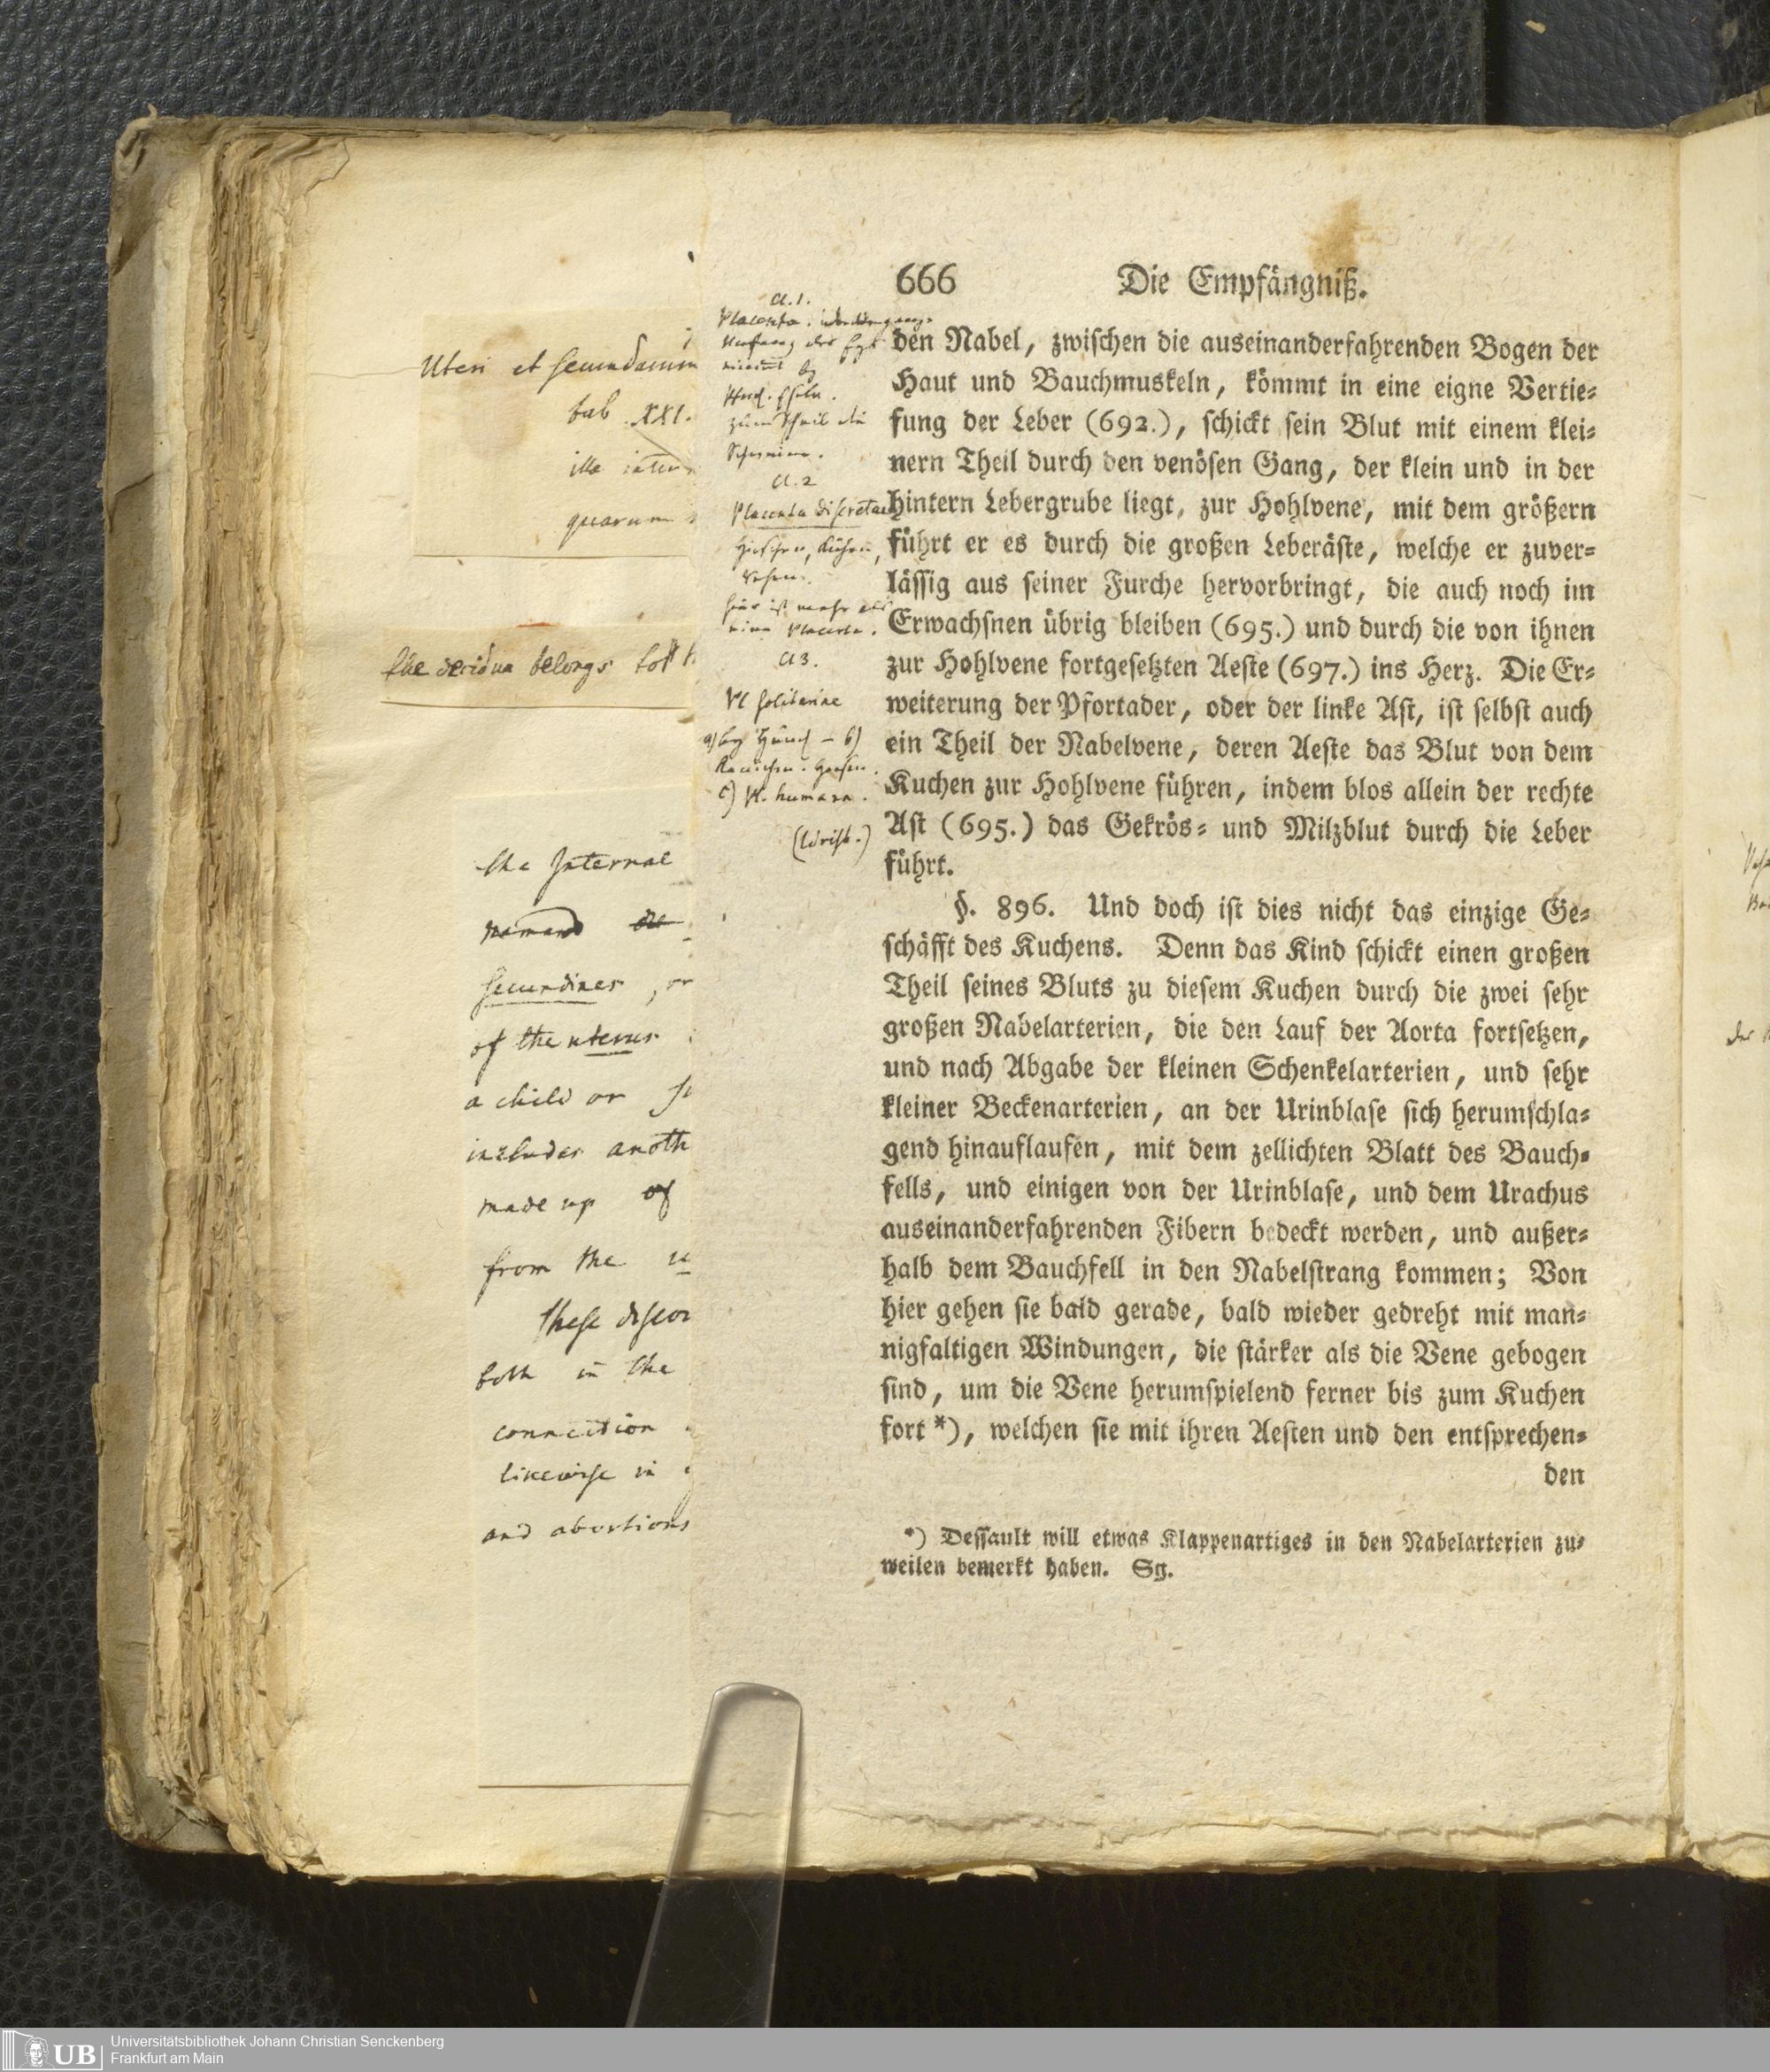 Uteri et secundarum
tab. XXI.
quarum
the decidua belongs to
the Internal
secundines, or
of the uterus
a child or
includes anoth
made up of
from the
these
both in the
connection
likewise in
and abortions
Cl. 1.
Placenta.
zum Theil die
Schweine.
Cl. 2
Placenta discretae
hier ist mehr als
eine Placenta.
Cl 3.
Pl solitariae
c) Pl. humana.
(Wrisb.)
666 Die Empfängniß.
den Nabel, zwischen die auseinanderfahrenden Bogen der
Haut und Bauchmuskeln, kömmt in eine eigne Vertie-
fung der Leber (692.), schickt sein Blut mit einem klei-
nern Theil durch den venösen Gang, der klein und in der
hintern Lebergrube liegt, zur Hohlvene, mit dem größern
führt er es durch die großen Leberäste, welche er zuver-
lässig aus seiner Furche hervorbringt, die auch noch im
Erwachsnen übrig bleiben (695.) und durch die von ihnen
zur Hohlvene fortgesetzten Aeste (697.) ins Herz. Die Er-
weiterung der Pfortader, oder der linke Ast, ist selbst auch
ein Theil der Nabelvene, deren Aeste das Blut von dem
Kuchen zur Hohlvene führen, indem blos allein der rechte
Ast (695.) das Gekrös- und Milzblut durch die Leber
führt.
§. 896. Und doch ist dies nicht das einzige Ge-
schäfft des Kuchens. Denn das Kind schickt einen großen
Theil seines Bluts zu diesem Kuchen durch die zwei sehr
großen Nabelarterien, die den Lauf der Aorta fortsetzen,
und nach Abgabe der kleinen Schenkelarterien, und sehr
kleiner Beckenarterien, an der Urinblase sich herumschla-
gend hinauflaufen, mit dem zellichten Blatt des Bauch-
fells, und einigen von der Urinblase, und dem Urachus
auseinanderfahrenden Fibern bedeckt werden, und außer-
halb dem Bauchfell in den Nabelstrang kommen; Von
hier gehen sie bald gerade, bald wieder gedreht mit man-
nigfaltigen Windungen, die stärker als die Vene gebogen
sind, um die Vene herumspielend ferner bis zum Kuchen
fort *), welchen sie mit ihren Aesten und den entsprechen-
den
*) Dessault will etwas Klappenartiges in den Nabelarterien zu-
weilen bemerkt haben. Sg.
UB Universitätsbibliothek Johann Christian Senckenberg
Frankfurt am Main